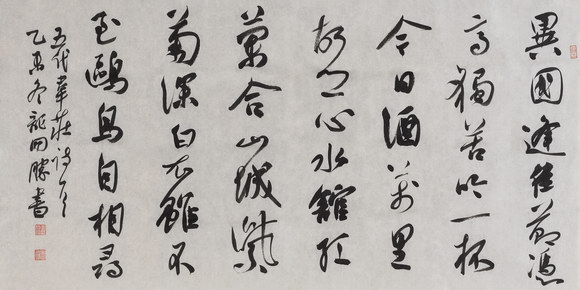 異國逢佳節憑
高獨苦吟一杯
今日酒萬里
故鄉心水館紅
蘭合山城紫
菊深白衣雖不
至鷗鳥自相尋
五代韋莊詩一首
乙冬龍勝書